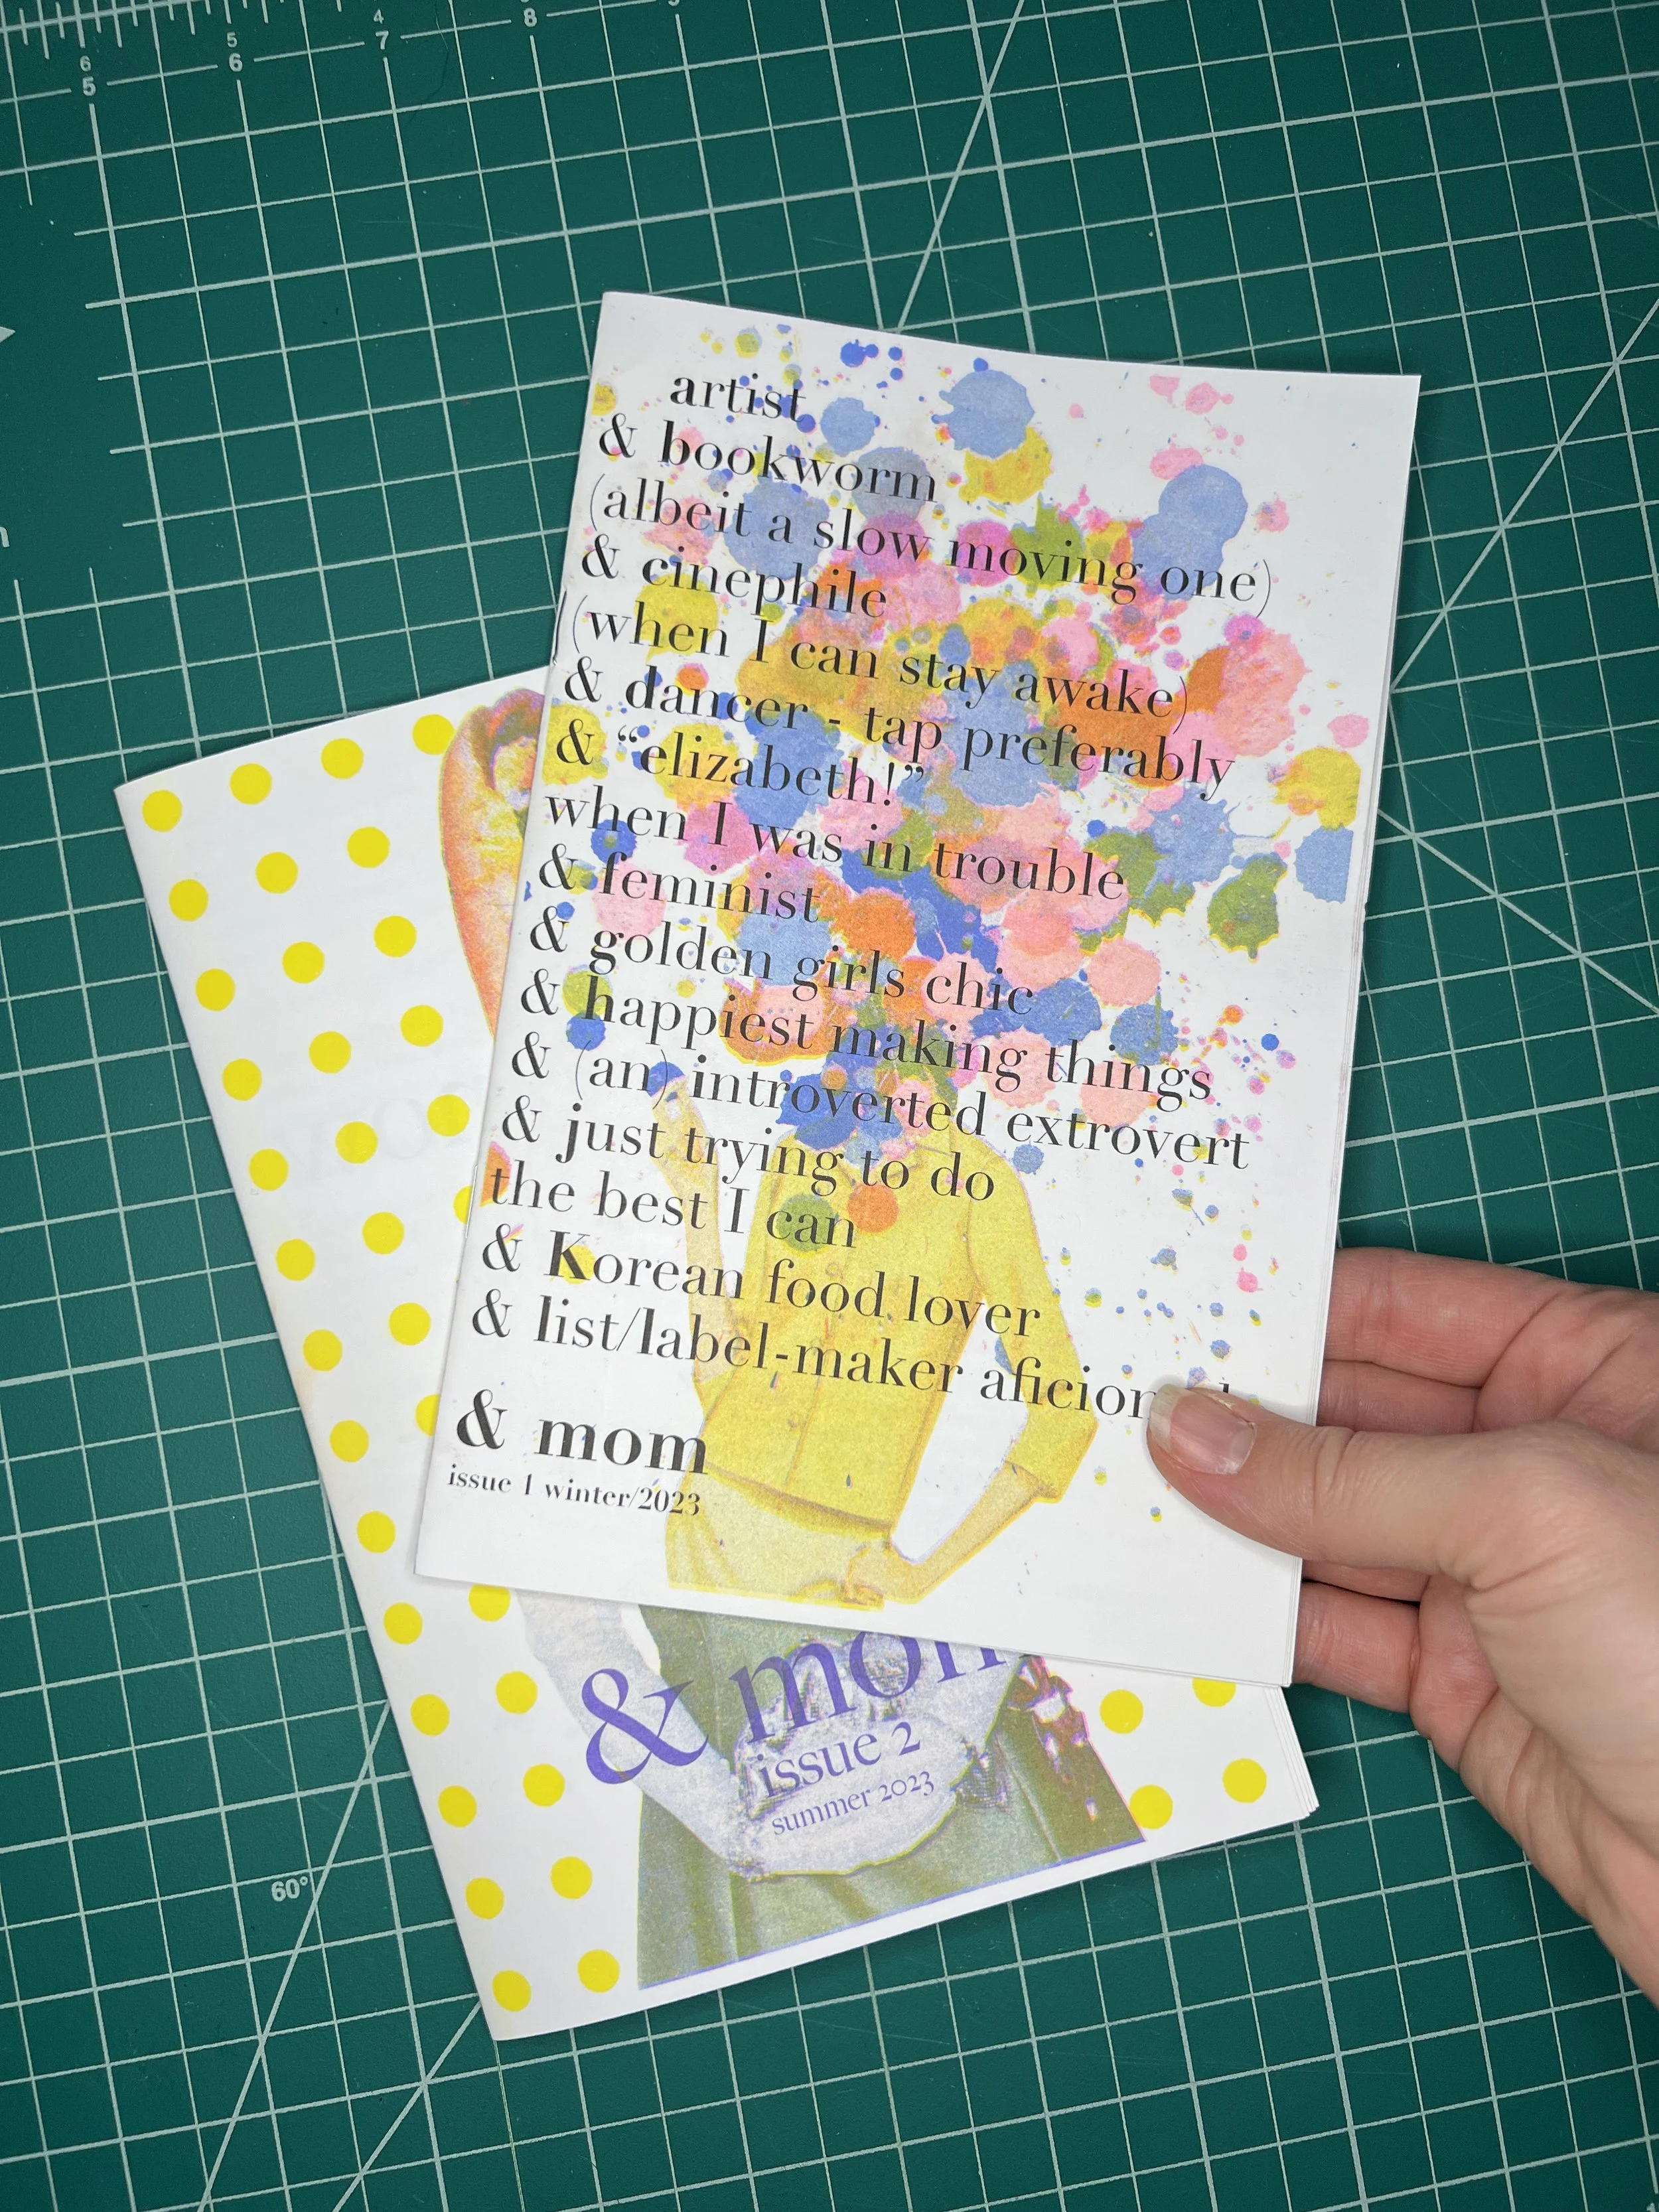 6
5
5
6
4
7
8
artist
& bookworm
(albeit a slow moving one)
& cinephile
(when I can stay awake)
& dancer - tap preferably
& “elizabeth!”
when I was in trouble
& feminist
& golden girls chic
& happiest making things
& (an) introverted extrovert
& just trying to do
the best I can
& Korean food lover
& list/label-maker
& mom
issue 1 winter/2023
& mom
issue 2
summer 2023
60°